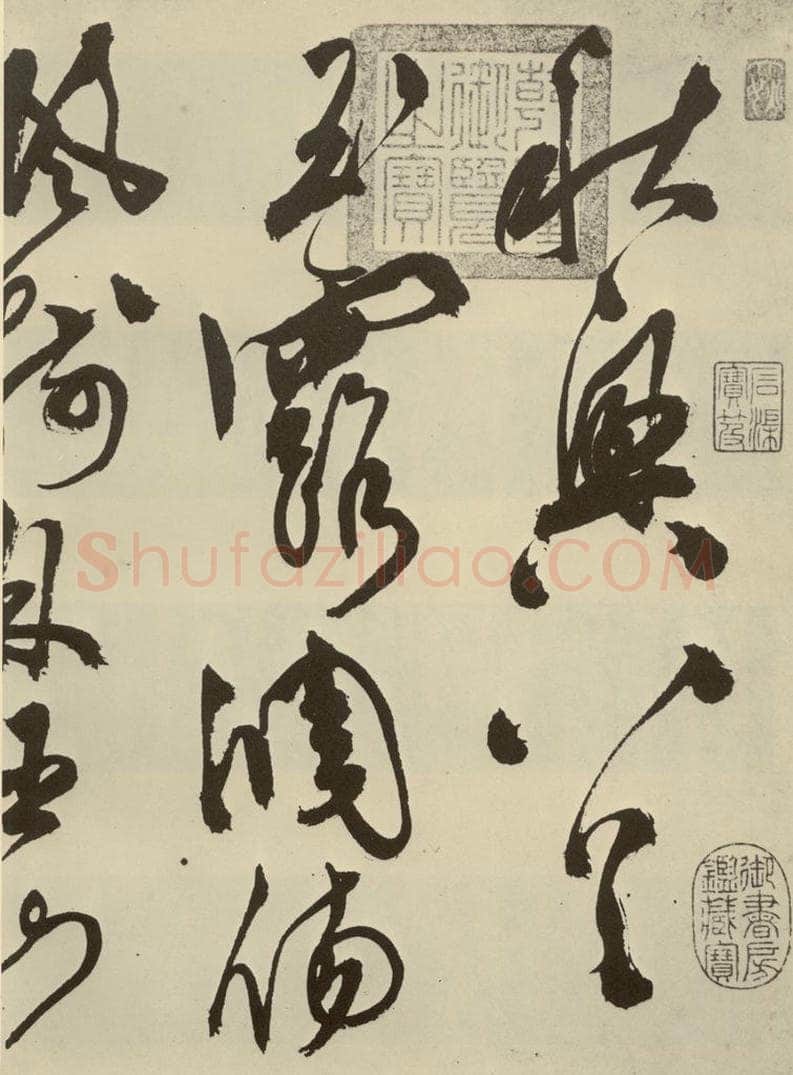 秋興八首
玉露凋傷
楓樹林巫山
乾隆御覽之寶
石渠寶笈
御書房鑑藏寶
Shufaziliao.COM